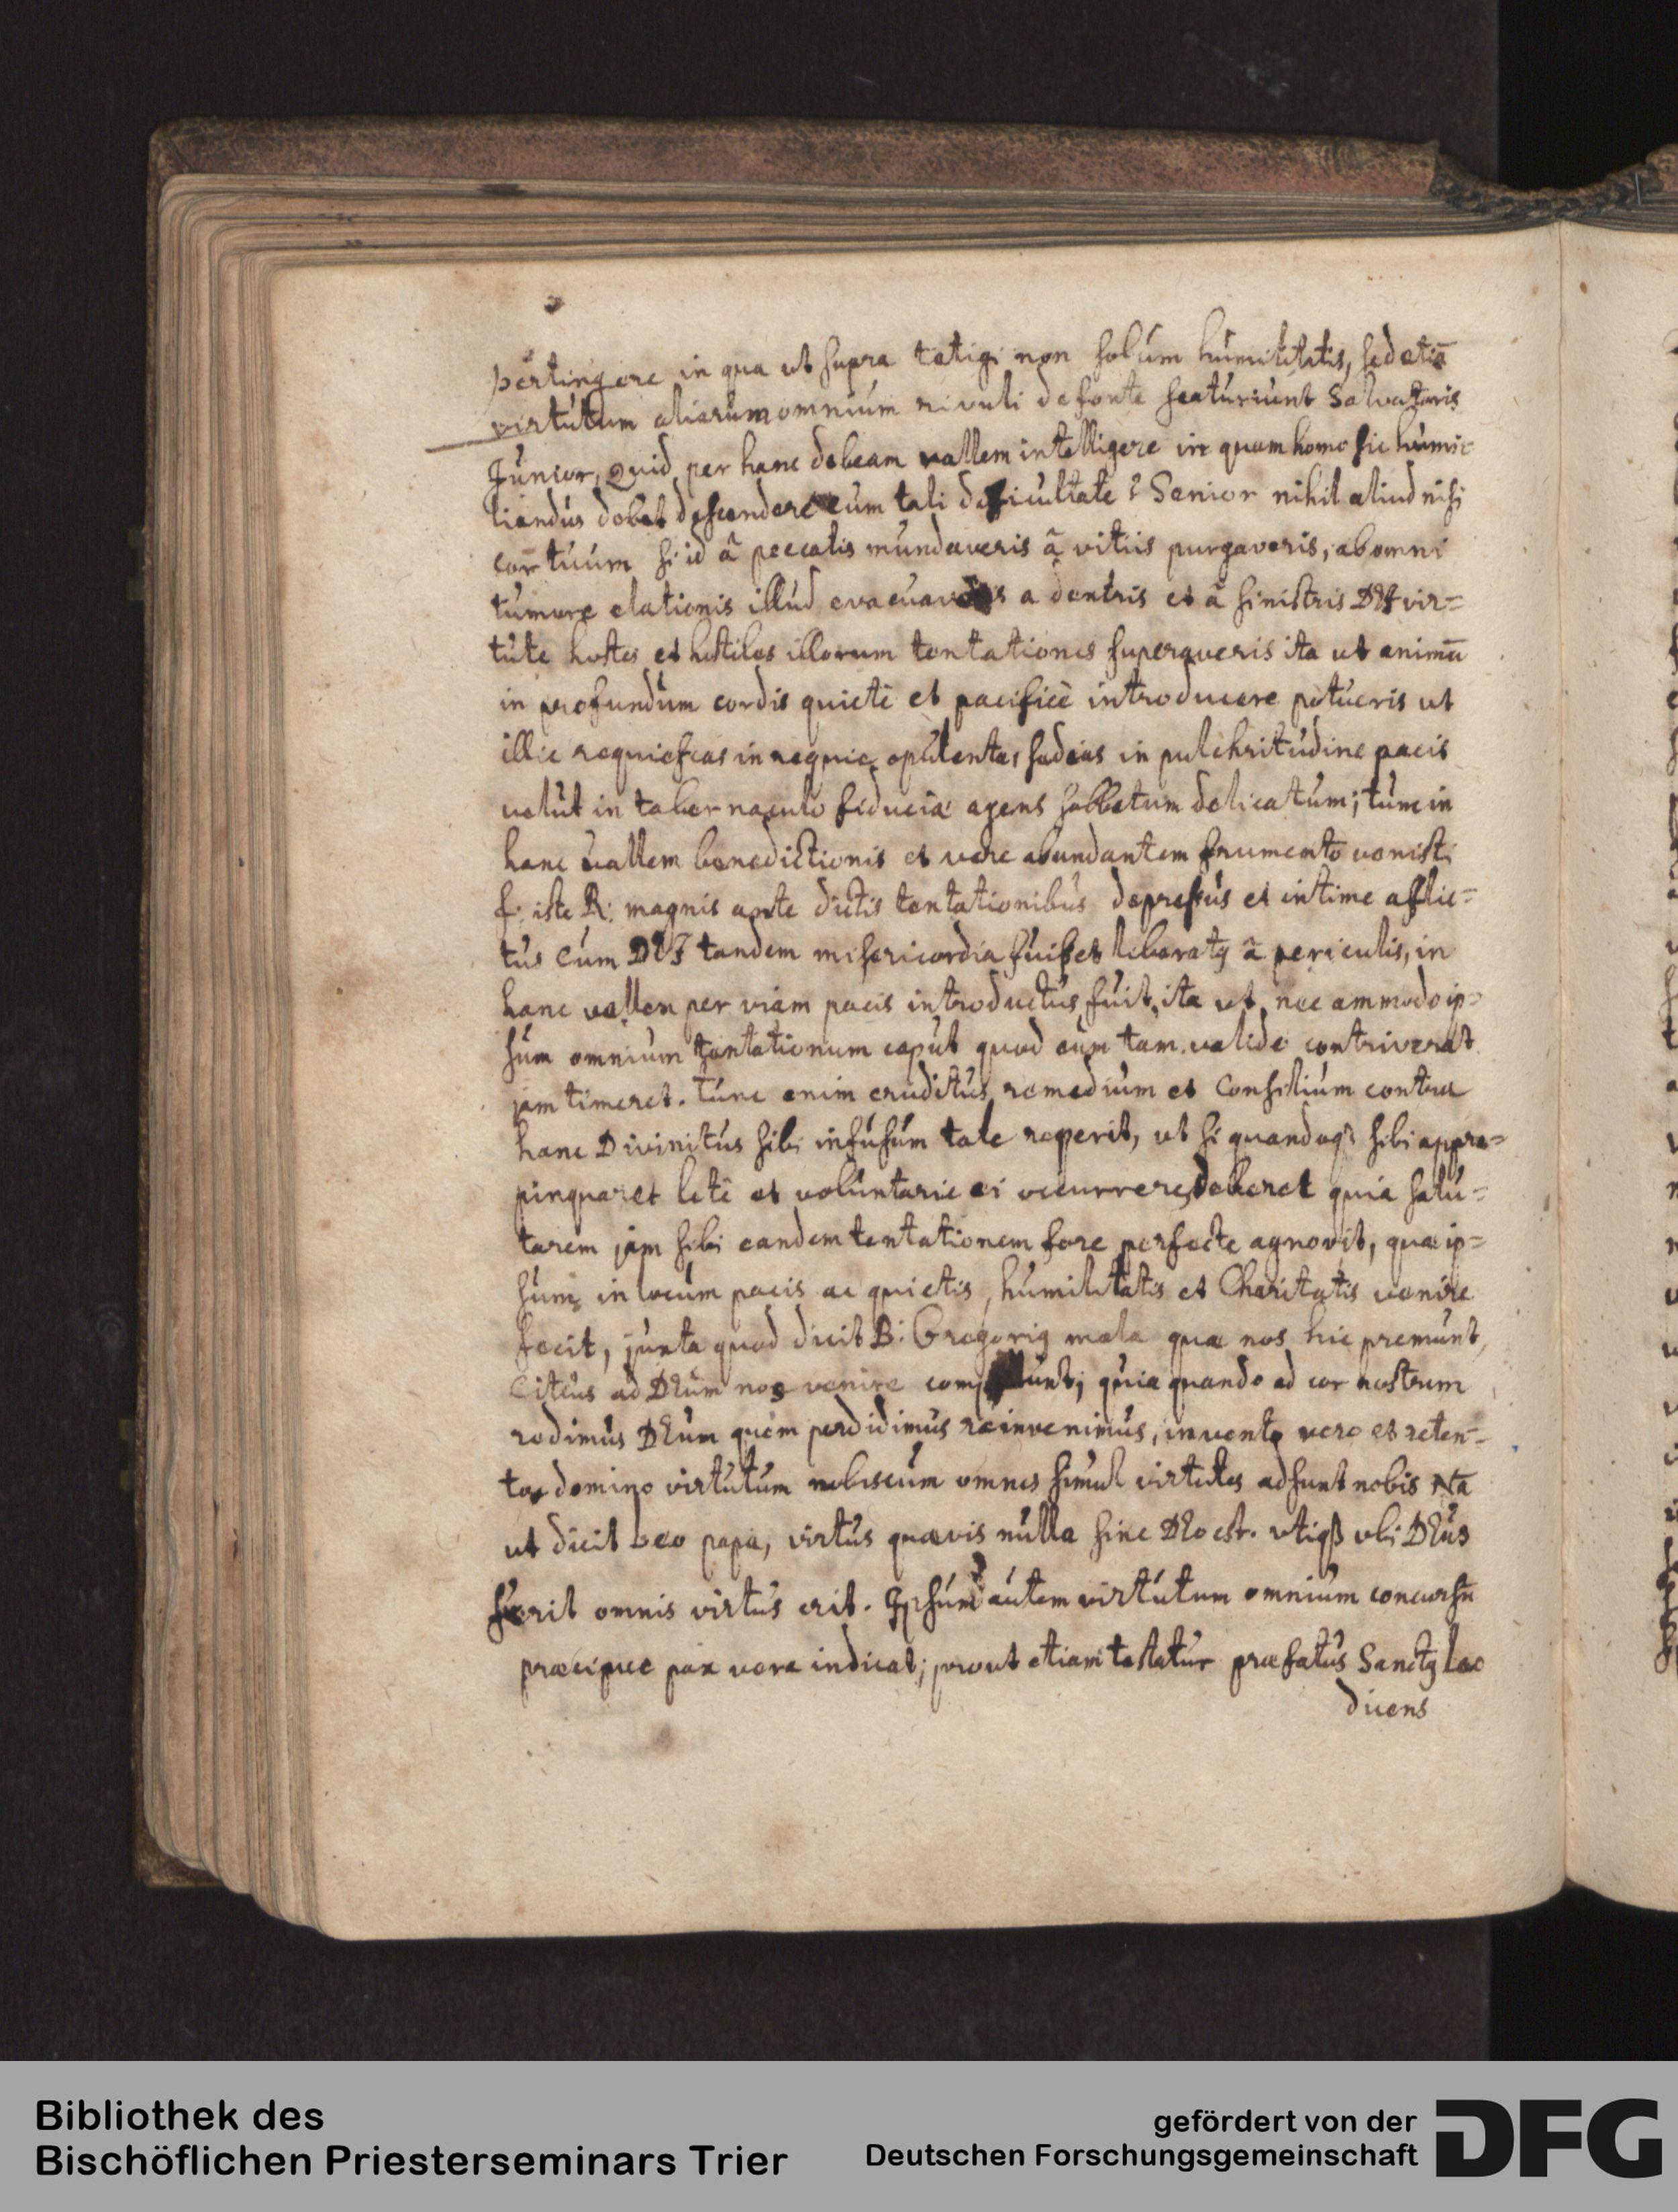 pertingere in qua ut supra tetigi non solùm humilitatis, sed etiã
virtutum aliarum omnium rivuli de fonte scaturiunt Salvatoris
Junior, Quid per hanc debeam vallem intelligere in quam homo sic humi-
liandus debet descendere cum tali dificultate? Senior nihil aliud nisi
cor tuum si id â peccatis mundaveris â vitiis purgaveris, ab omni
tumore elationis illud evacuaveris a dextris et â sinistris DEI vir=
tute hostes et hostiles illorum tentationes superaveris ita ut animũ
in profundum cordis quietè et pacificè introducere potueris ut
illic requiescas in requie opulenta, sedeas in pulchritudine pacis
velut in tabernaculo fiduciæ agens sabbatum delicatum; tunc in
hanc vallem benedictionis et vere abundantem frumento venisti
f: iste R: magnis ante dictis tentationibus depressus et intime aflic=
tus cum DEI tandem misericordia fuisset liberatq â periculis, in
hanc vallem per viam pacis introductus fuit, ita ut nec ammodo ip=
sum omnium tentationum caput quod eum tam valide contriverat
jam timeret. tunc enim eruditus remedium et Consilium contra
hanc Divinitus sibi infusum tale reperit, ut si quandoq3 sibi appro=
pinquaret letè et voluntarie ei occurrere deberet quia salu=
tarem jam sibi eandem tentationem fore perfecte agnovit, quæ ip=
sum in locum pacis ac quietis, humilitatis et Charitatis venire
fecit, juxta quod dicit B: Gregoriq mala quæ nos hic premunt,
Citius ad DEum nos venire compellunt; quia quando ad cor nostrum
redimus DEum quem perdidimus reinvenimus, invento vero et reten=
to domino virtutum nobiscum omnes simul virtutes adsunt nobis Nã
ut dicit Leo papa, virtus quævis nulla sine DEo est. utiq3 ubi DEus
fuerit omnis virtus erit. Ipsum autem virtutum omnium concursũ
præcipue pax vera indicat; prout etiam testatur præfatus Sanctq Leo
dicens
Bibliothek des
Bischöflichen Priesterseminars Trier
gefördert von der
Deutschen Forschungsgemeinschaft
DFG